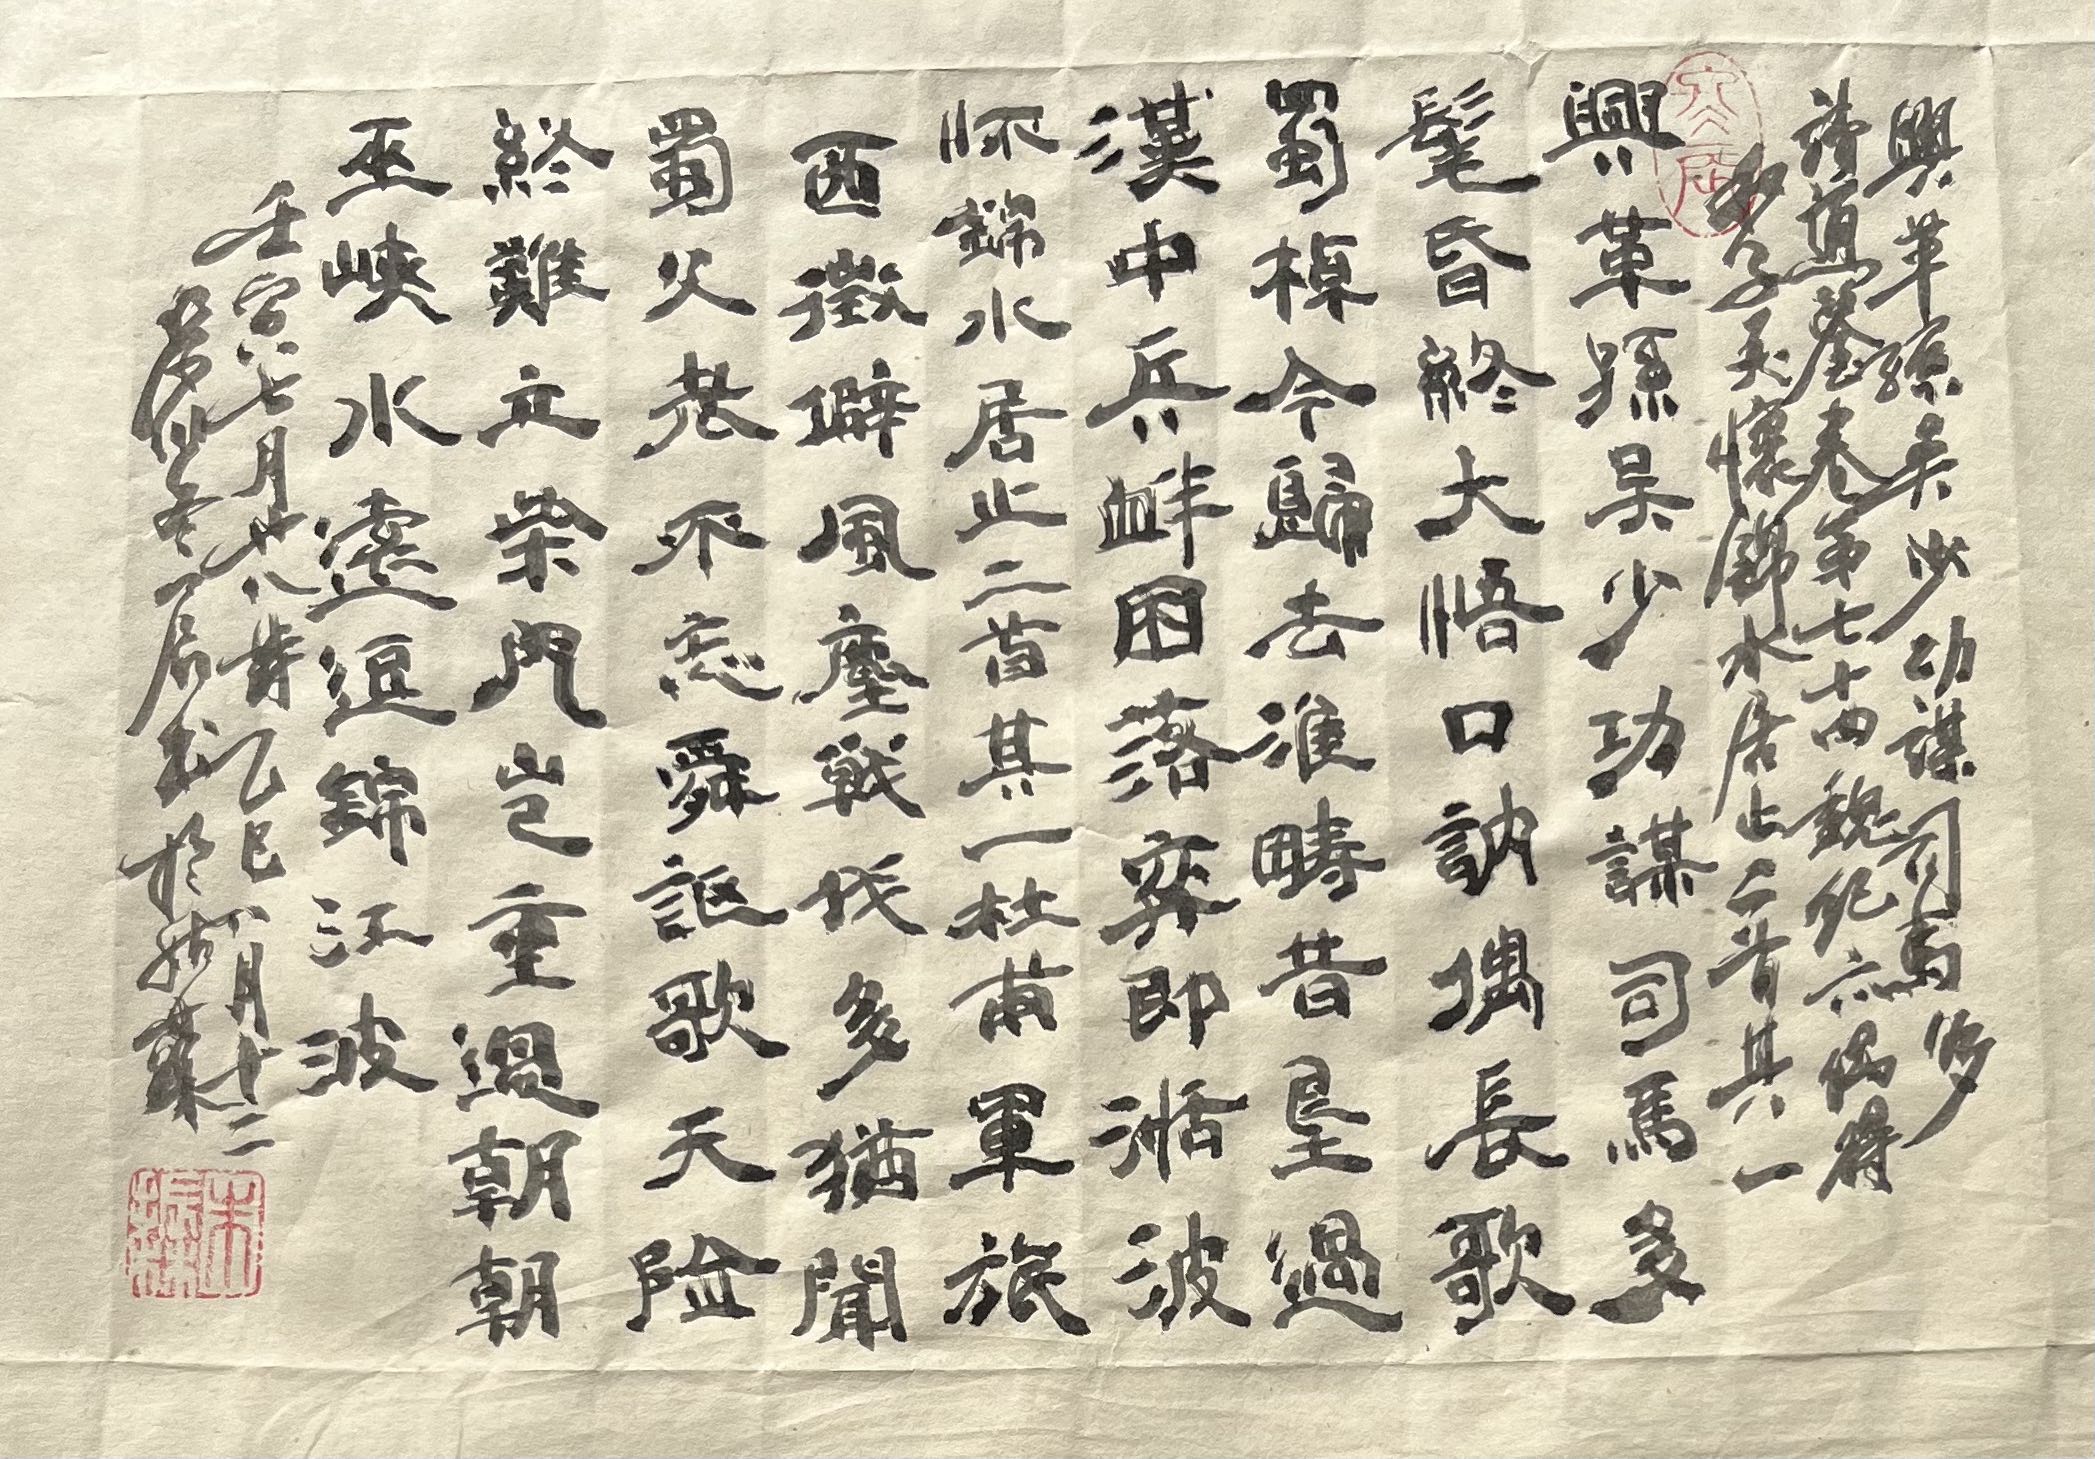 興革孫吳少功謀司馬多
讀通鑒卷第七十四魏紀六偶得
步子美懷錦水居止二首其一
興革孫吳少功謀司馬多
髦昏終大悟口訥偶長歌
蜀棹今歸去淮疇昔墾過
漢中兵衅困落弈即湉波
怀錦水居止二首其一杜甫軍旅
西徵僻風塵戰伐多猶聞
蜀父老不忘舜謳歌天險
終難立柴門豈重過朝朝
巫峽水遠逗錦江波
壬寅七月廿八時乙巳八月十二
於姑蘇